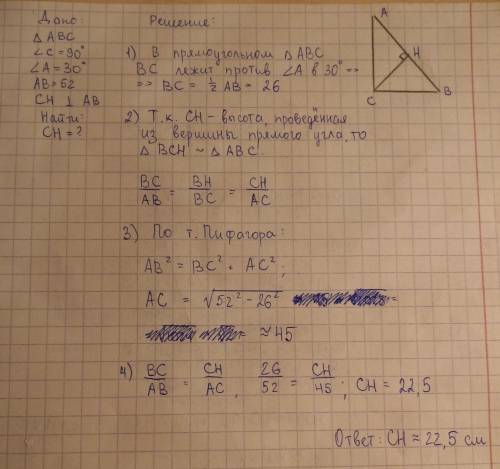 Дано:
△ ABC
∠C = 90°
∠A = 30°
AB = 52
CH ⊥ AB
Найти:
CH = ?
Решение:
1) В прямоугольном △ ABC
BC лежит против ∠A в 30° =>
=> BC = 1/2 AB = 26
2) Т.к. CH - высота, проведённая
из вершины прямого угла, то
△ BCH ~ △ ABC.
BC/AB = BH/BC = CH/AC
3) По т. Пифагора:
AB² = BC² + AC²;
AC = √52² - 26² =
≈ 45
4) BC/AB = CH/AC, 26/52 = CH/45; CH = 22,5
Ответ: CH ≈ 22,5 см
A
H
C
B